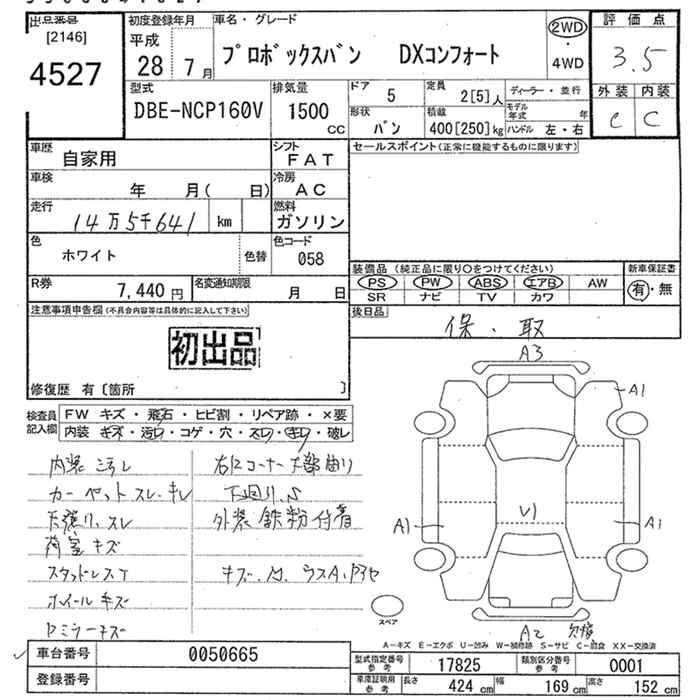 出品番号
[2146]
4527
初度登録年月
平成
28 7月
車名・グレード
プロボックスバン DXコンフォート
2WD
・
4WD
評価点
3.5
外装 内装
C C
型式
DBE-NCP160V
排気量
1500
cc
ドア
5
定員
2[5]人
ディーラー・並行
形状
バン
積載
400[250]kg
モデル年式 年
ハンドル 左・右
車歴
自家用
シフト
FAT
セールスポイント(正常に機能するものに限ります)
車検
年 月( 日)
冷房
AC
走行
14万5千641 km
燃料
ガソリン
色
ホワイト
色替
色コード
058
装備品 (純正品に限り○をつけてください)
新車保証書
PS PW ABS エアB AW
有・無
SR ナビ TV カワ
R券
7,440円
名変通知期限
月 日
後日品
保・取
注意事項申告欄(不具合内容等は具体的に記入して下さい)
初出品
修復歴 有〔箇所 〕
検査員記入欄
FW キズ・飛石・ヒビ割・リペア跡・×要
内装 キズ・汚レ・コゲ・穴・スレ・キレ・破レ
内装こすレ
カーペットスレ・キレ
天張リ、スレ
荷室キズ
スタッドレスT
ホイールキズ
Dミラーキズ
右Rコーナー下部曲り
下回り、S
外装鉄粉付着
A3
A1
A1
U1
A1
A2
スペア
A-キズ E-エクボ U-凹み W-補修跡 S-サビ C-腐食 XX-交換済
車台番号
0050665
登録番号
型式指定番号
参考
17825
類別区分番号
参考
0001
車庫証明用
参考
長さ
424 cm
幅
169 cm
高さ
152 cm